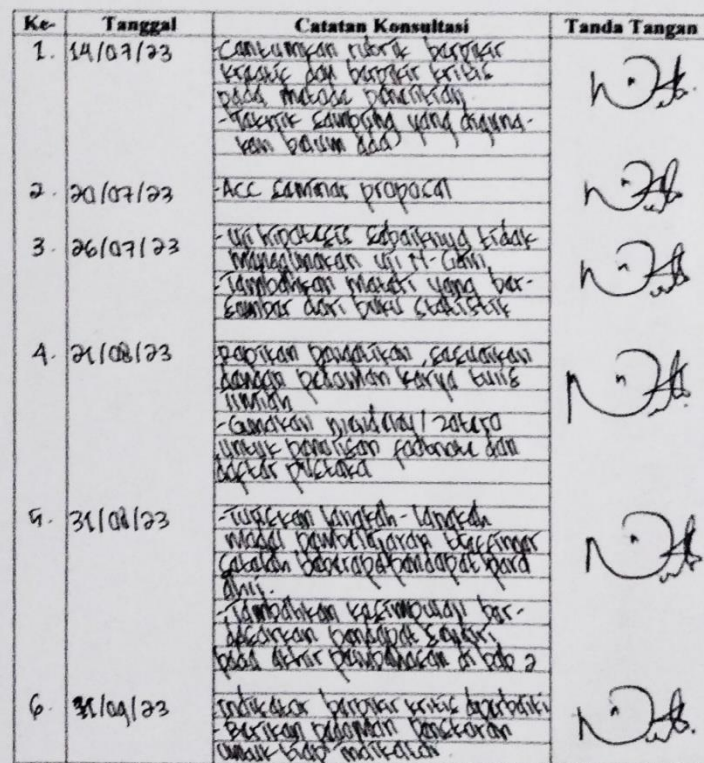 Ke- Tanggal Catatan Konsultasi Tanda Tangan
1. 14/07/23 -Cantumkan rubrik berpikir
kreatif dan berpikir kritis
pada metode penelitian
-Teknik sampling yang diguna-
kan belum ada
2. 20/07/23 -Acc seminar proposal
3. 26/07/23 -Uji hipotesis sebaiknya tidak
menggunakan uji N-Gain
-Tambahkan materi yang ber-
sumber dari buku statistik
4. 21/08/23 sesuaikan
dengan pedoman karya tulis
ilmiah
-Gunakan mendeley/zotero
untuk penulisan footnote dan
daftar pustaka
5. 31/08/23 -Tuliskan langkah-langkah
model pembelajaran treffinger
setelah beberapa pendapat para
ahli.
-Tambahkan kesimpulan ber-
dasarkan pendapat sendiri
pada akhir pembahasan di bab 2
6. /09/23 Indikator berpikir kritis diperbaiki
-Berikan pedoman penskoran
untuk tiap indikator